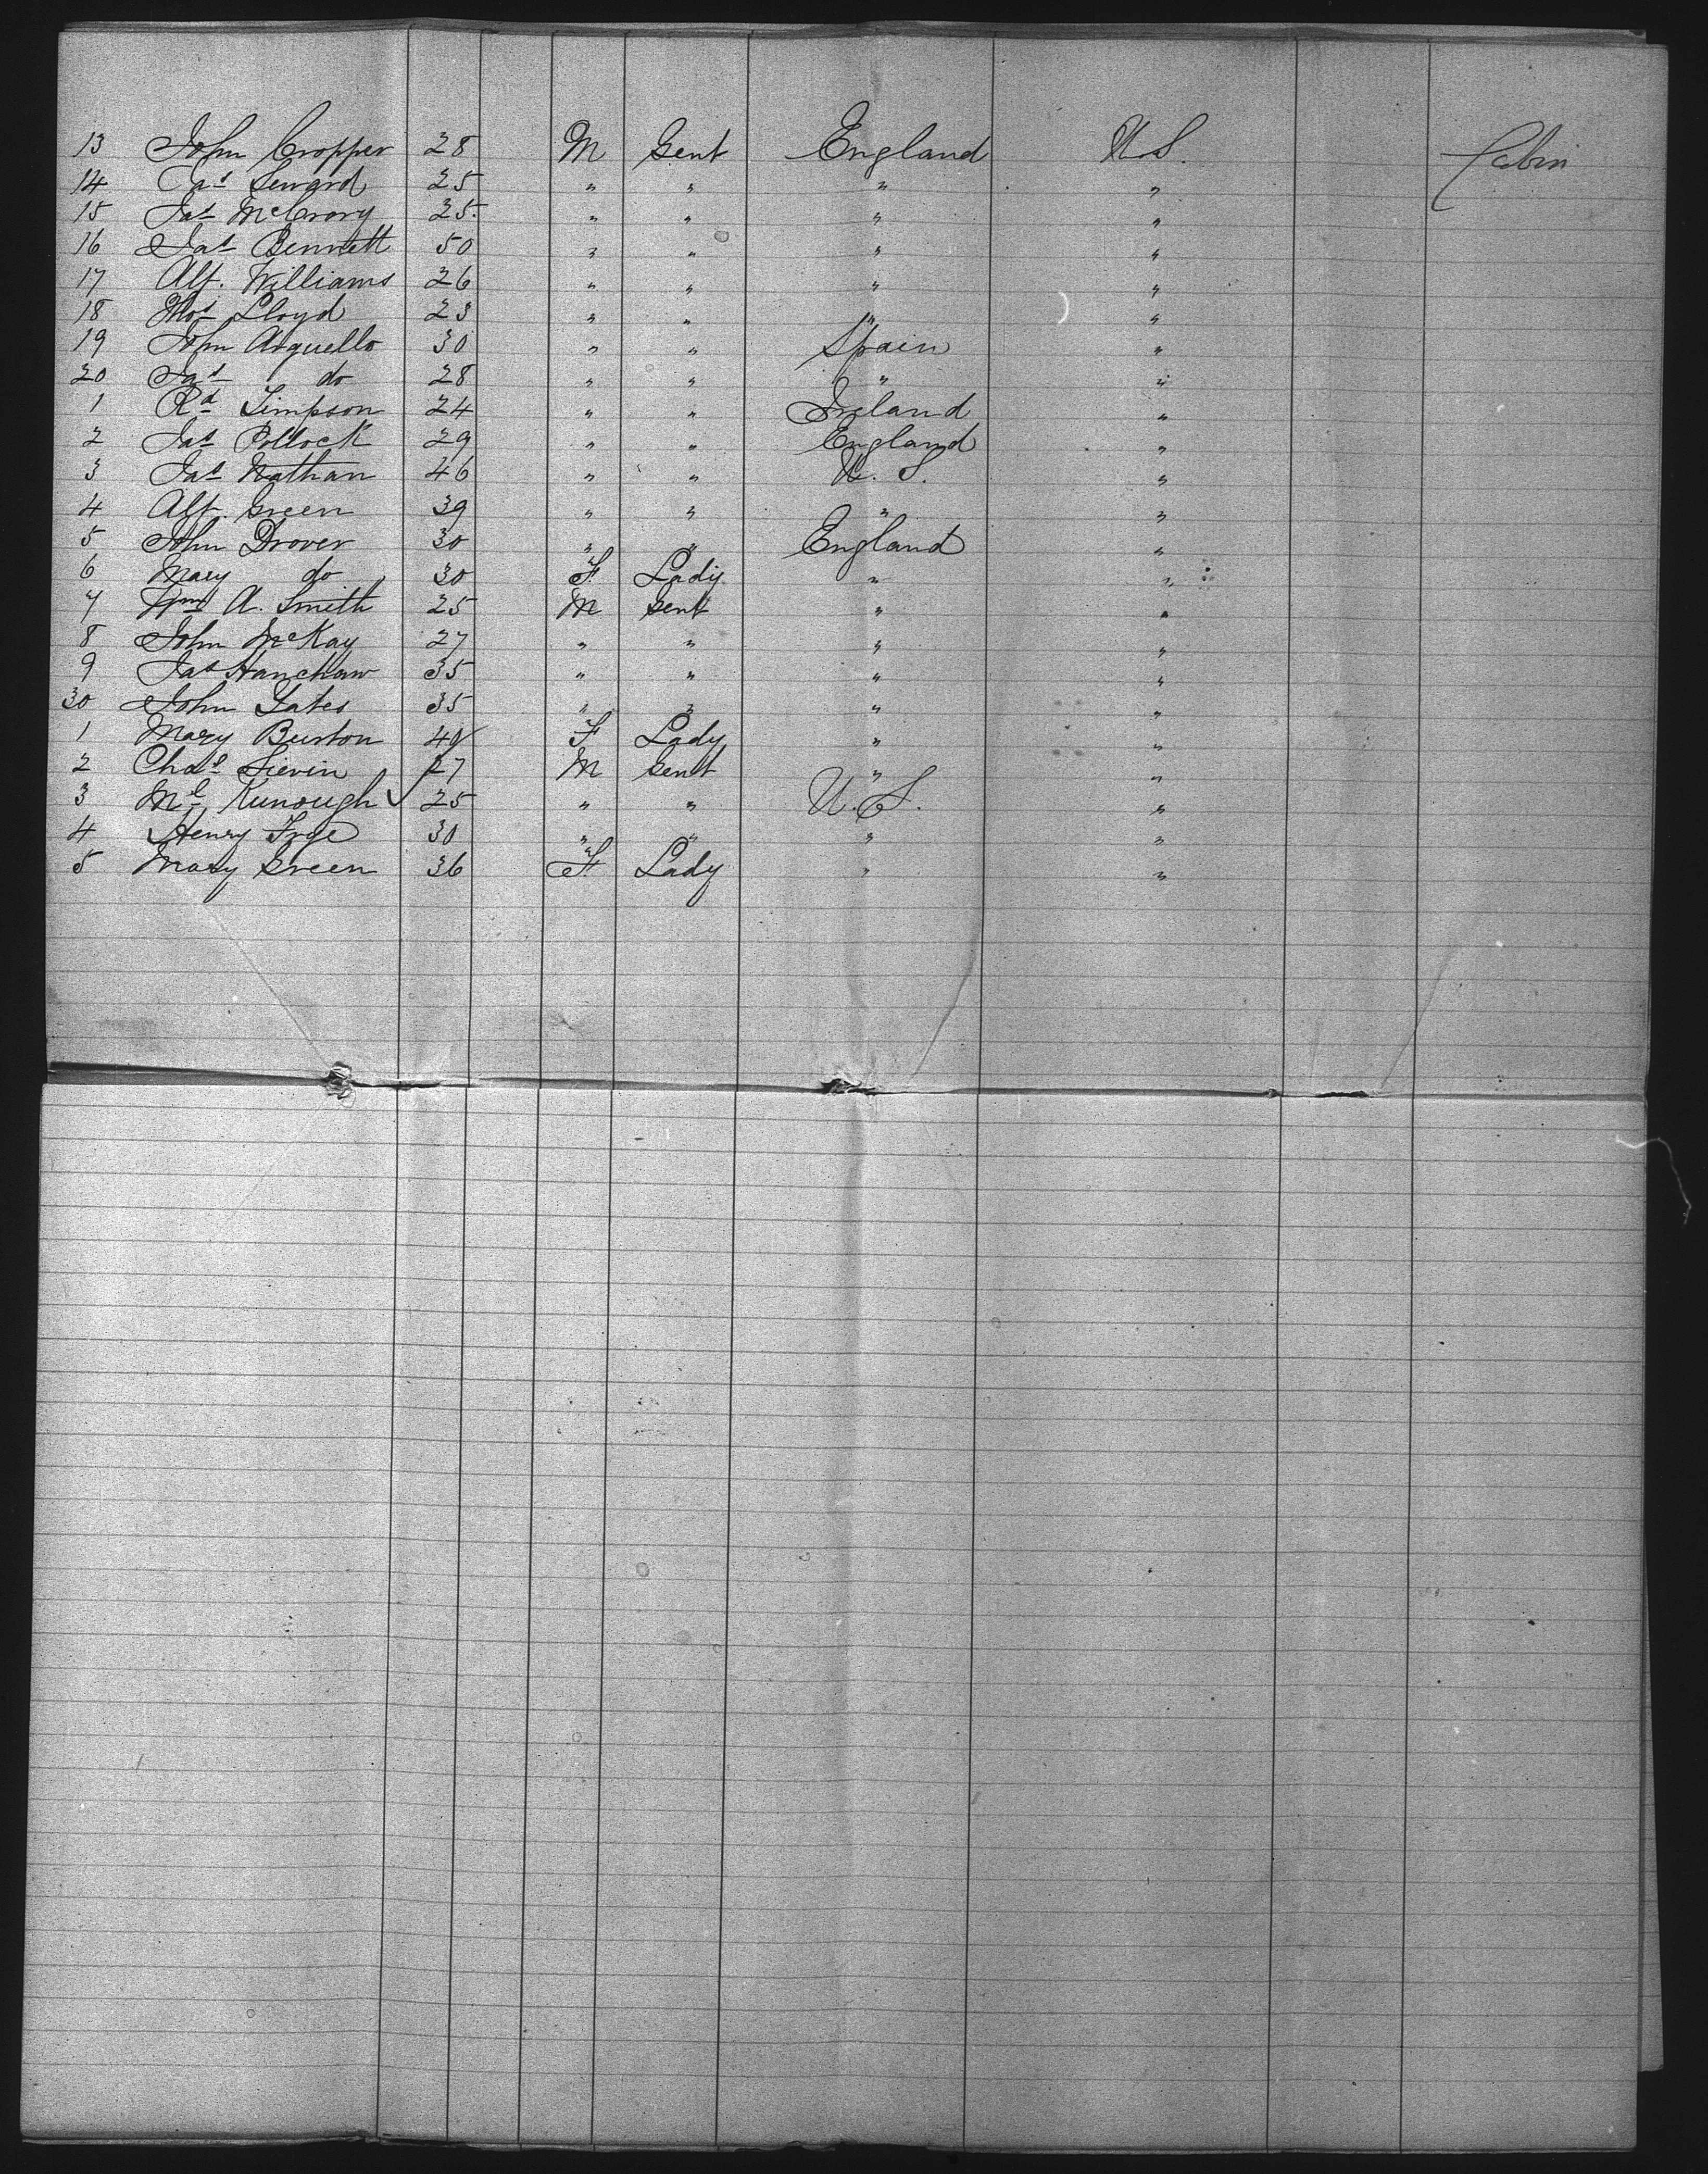 13 John Cropper 28 M Gent England U.S. Cabin
14 Jas Seward 25 " " " "
15 Jas McCrory 25. " " " "
16 Jas Bennett 50 " " " "
17 Alf. Williams 26 " " " "
18 Thos Lloyd 23 " " " "
19 John Arguello 30 " " Spain "
20 Jas do 28 " " " "
1 Rd Timpson 24 " " Ireland "
2 Jas Pollock 29 " " England "
3 Jas Nathan 46 " " U.S. "
4 Alf. Green 39 " " " "
5 John Drover 30 " " England "
6 Mary do 30 F. Lady " "
7 Wm A. Smith 25 M Gent " "
8 John McKay 27 " " " "
9 Jas Hanchaw 35 " " " "
30 John Yates 35 " " " "
1 Mary Burton 40 F Lady " "
2 Chas 27 M Gent " "
3 25 " " U.S. "
4 Henry 30 " " " "
5 Mary Green 36 F. Lady " "